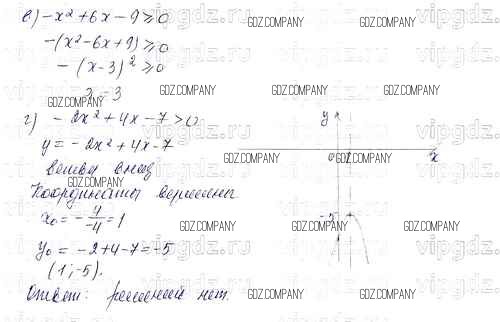 в) -x² + 6x - 9 ≥ 0
-(x² - 6x + 9) ≥ 0
-(x - 3)² ≥ 0
г) -2x² + 4x - 7 > 0
y = -2x² + 4x - 7
ветви вниз
Координаты вершины
x₀ = -4/-4 = 1
y₀ = -2 + 4 - 7 = -5
(1; -5).
Ответ: решений нет.
y
0
x
-5
GDZ.COMPANY
vipgdz.ru